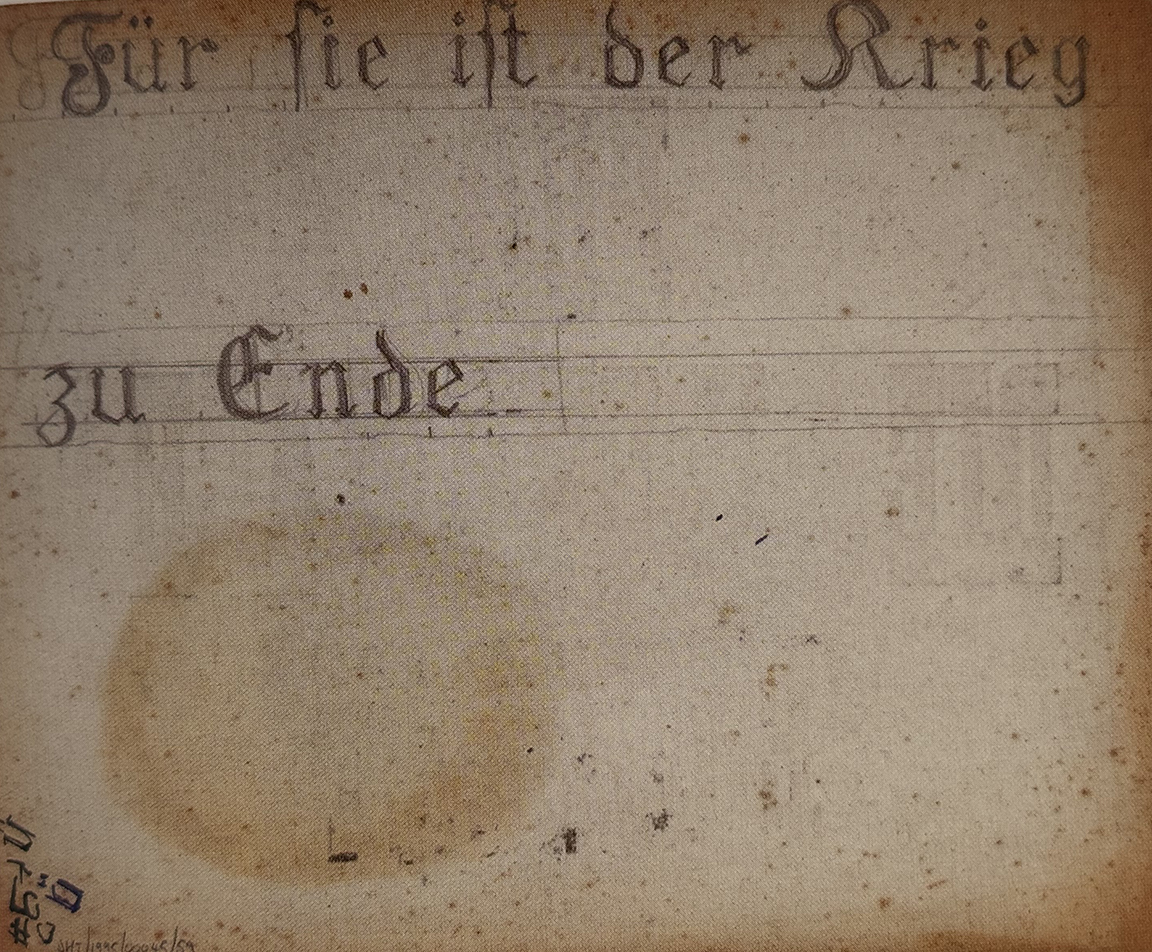 Für sie ist der Krieg
zu Ende